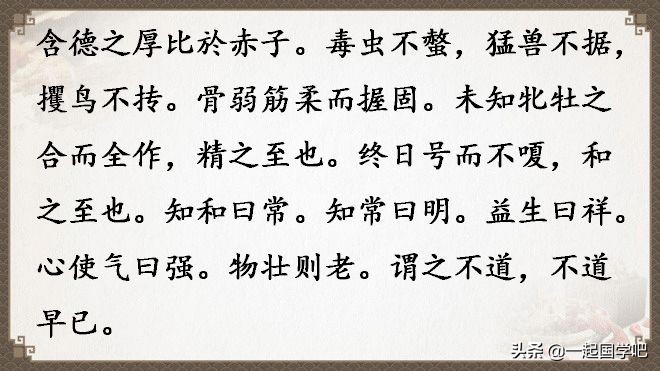 含德之厚比於赤子。毒虫不螫，猛兽不据，
攫鸟不抟。骨弱筋柔而握固。未知牝牡之
合而全作，精之至也。终日号而不嗄，和
之至也。知和曰常。知常曰明。益生曰祥。
心使气曰强。物壮则老。谓之不道，不道
早已。
头条 @一起国学吧